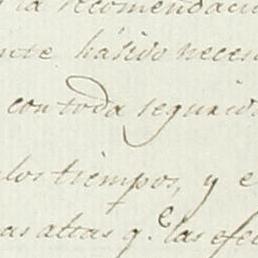 la recomendaci
nte ha sido neces
con toda segurid
los tiempos, y e
as altas q.e las efec